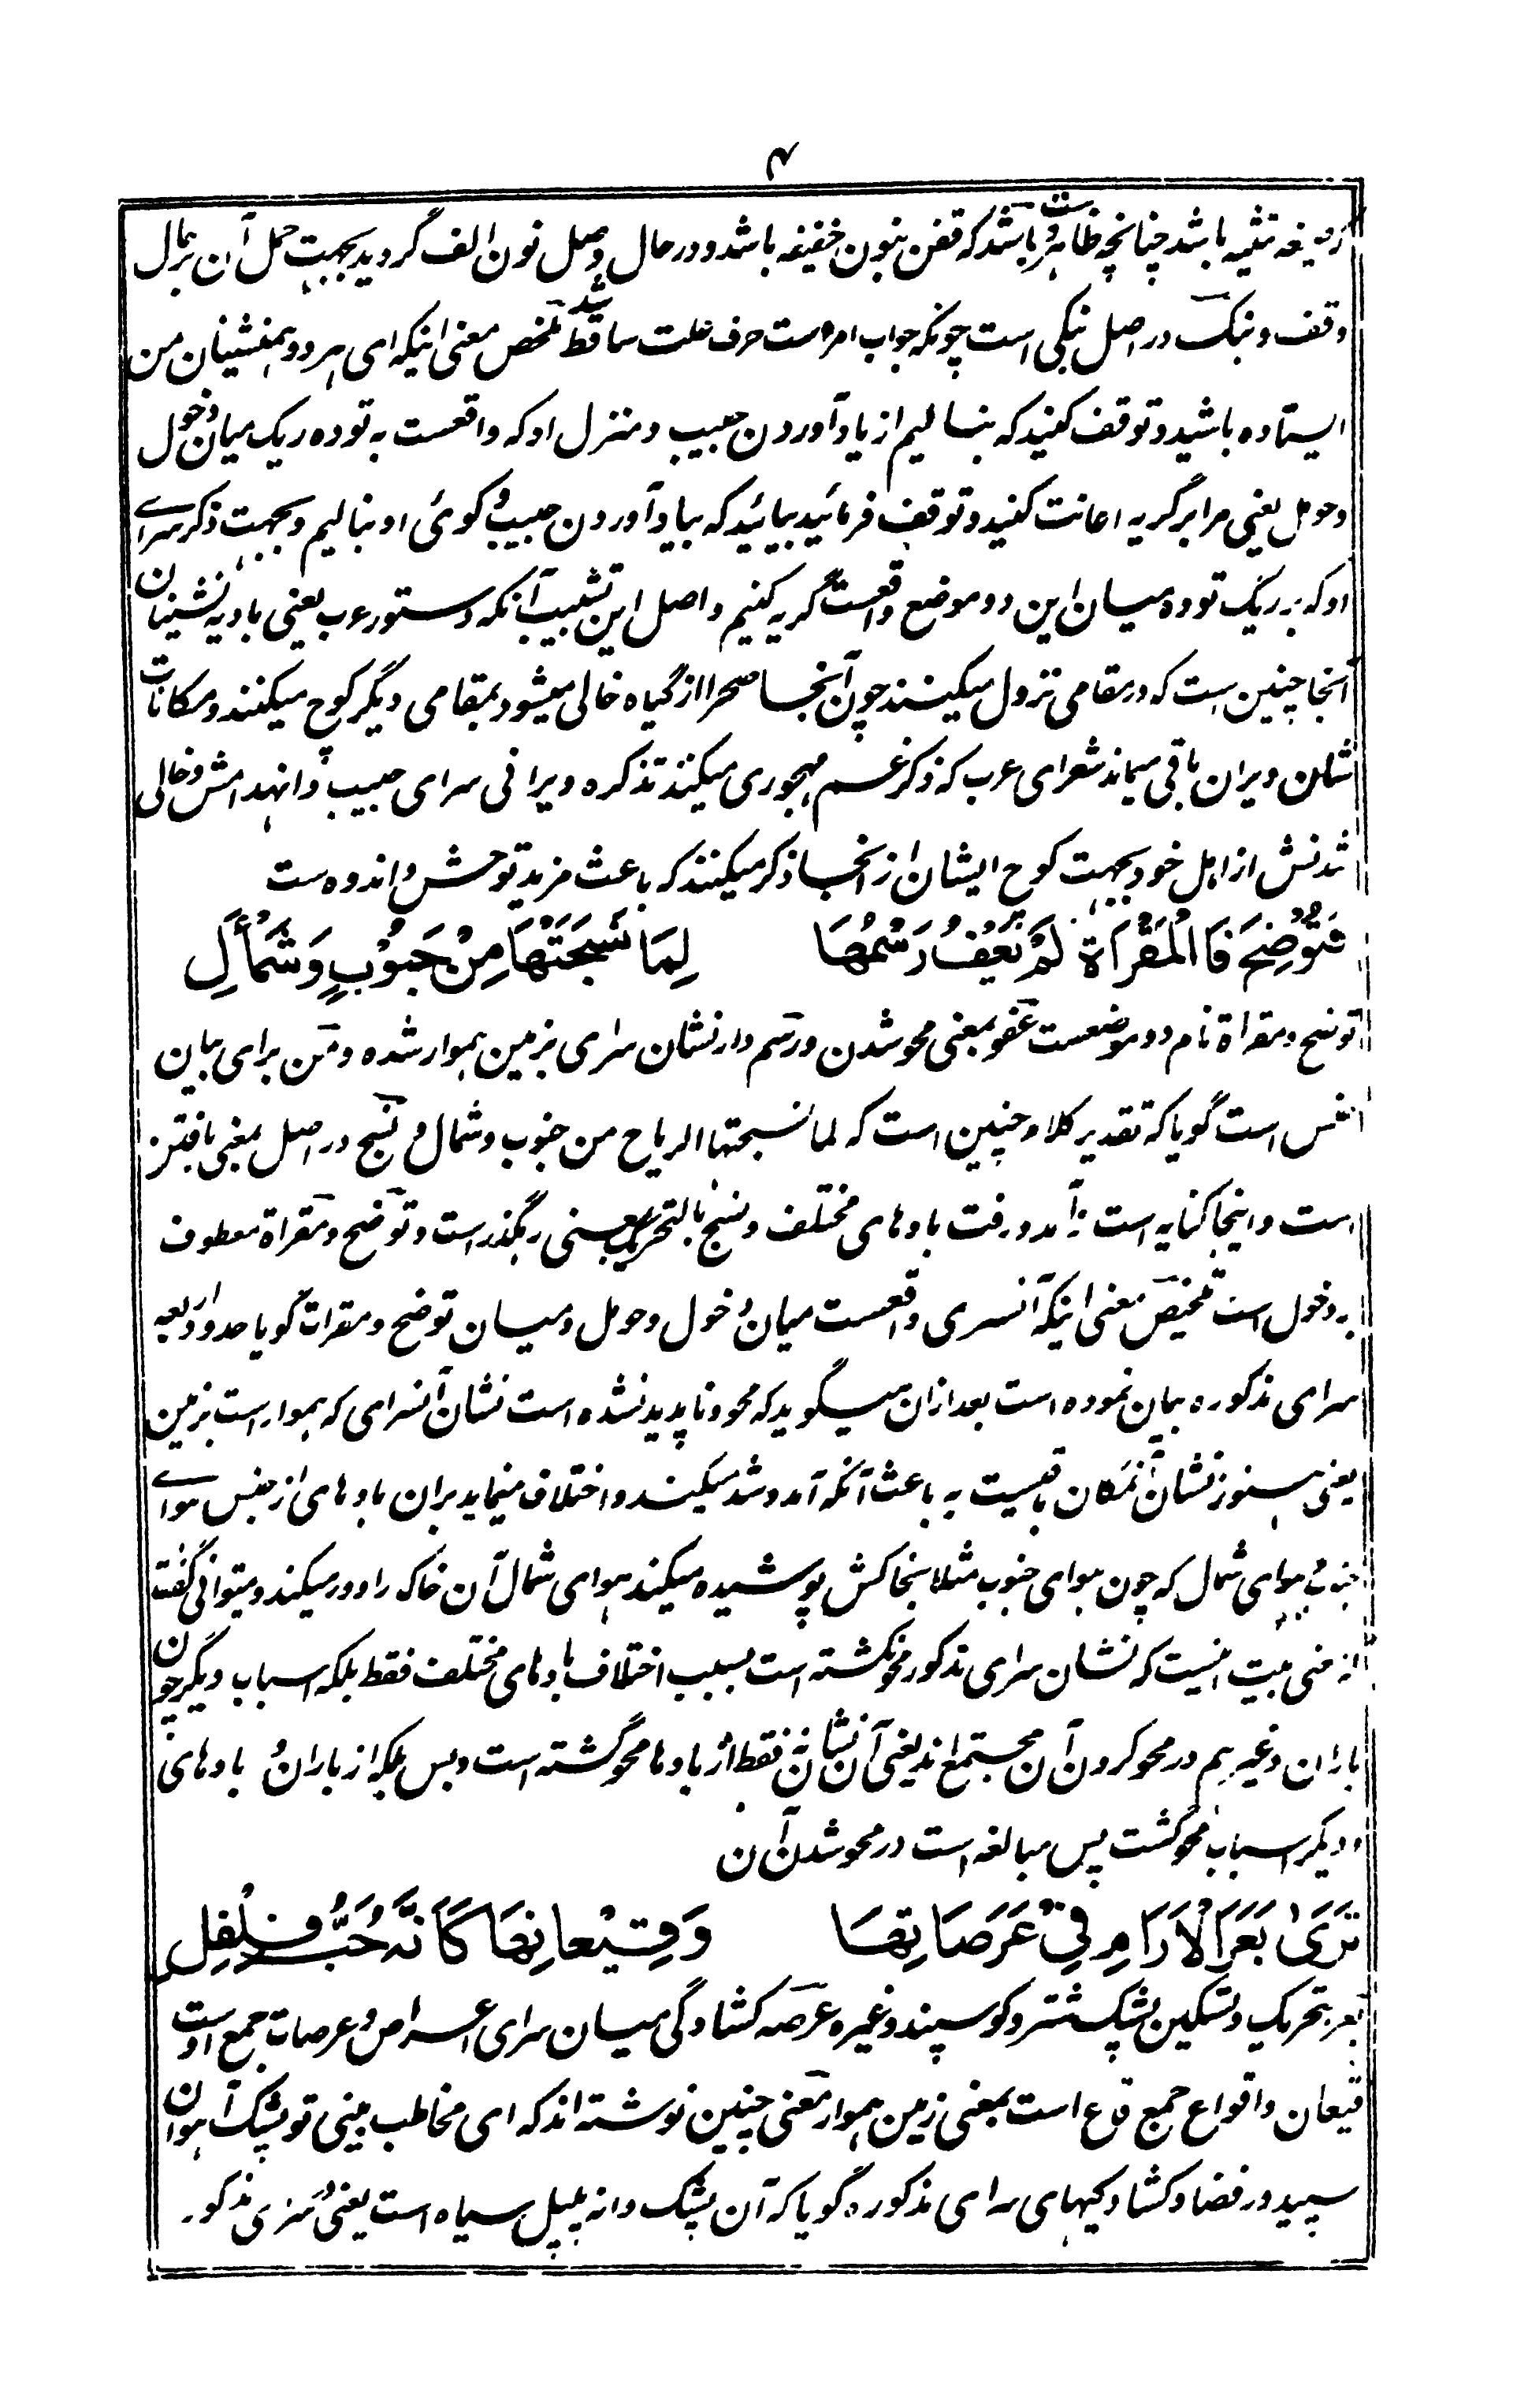 ۴
صیغه تثنیه باشد چنانچه ظاهر است و باشد که قفن بنون خفیفه باشد و در حال وصل نون الف گردید بجهت حمل آن بر حال
وقف و نبک در اصل نبکی است چونکه جواب امر است حرف علت ساقط شد ملخص معنی اینکه ای هر دو همنشینان من
ایستاده باشید و توقف کنید که بنالیم از یاد آوردن حبیب و منزل او که واقعست به توده ریک میان دخول
و حومل یعنی مرا بر گریه اعانت کنید و توقف فرمائید بیائید که بیاد آوردن حبیب و کوئی او بنالیم و بجهت ذکر سرای
او که بر ریک توده میان این دو موضع واقعست گریه کنیم و اصل این تشبیب آنکه دستور عرب یعنی بادیه نشینان
آنجا چنین است که در مقامی نزول میکنند چون آنجا صحرا از گیاه خالی میشود بمقامی دیگر کوچ میکنند و مکانات
شان ویران باقی میماند شعرای عرب که ذکر غم مهجوری میکنند تذکره ویرانی سرای حبیب و انهدامش و خالی
شدنش از اهل خود بجهت کوچ ایشان از آنجا ذکر میکنند که باعث مزید توحش و اندوه ست
فَتُوْضِحَ فَالْمَقْرَاةِ لَمْ يَعْفُ رَسْمُهَا لِمَا نَسَجَتْهَا مِنْ جَنُوْبٍ وَشَمْأَلِ
توضح و مقراة نام دو موضعست عفو بمعنی محو شدن و رسم دار نشان سرای بزمین هموار شده و من برای بیان
جنس است گویا که تقدیر کلام چنین است که لما نسجتها الریاح من جنوب و شمال و نسج در اصل بمعنی بافتن
است و اینجا کنایه است بآمد و رفت بادهای مختلف و نسج بالتحریک بمعنی رهگذر است و توضح و مقراة معطوف
به دخول است تلخیص معنی اینکه آنسری واقعست میان دخول و حومل و میان توضح و مقرات گویا حدود اربعه
سرای مذکوره بیان نموده است بعد ازان میگوید که محو و ناپدید نشده است نشان آنسرای که هموار است بزمین
یعنی هنوز نشان آنمکان باقیست به باعث آنکه آمد و شد میکنند و اختلاف مینماید بران بادهای از جنس هوای
جنوب و هوای شمال که چون هوای جنوب مثلا بخاکش پوشیده میکند هوای شمال آن خاک را دور میکند و میتوانی گفت
که معنی بیت اینست که نشان سرای مذکور محو نگشته است بسبب اختلاف بادهای مختلف فقط بلکه اسباب دیگر چون
باران و غیره هم در محو کردن آن مجتمع اند یعنی آن نشان نه فقط از بادها محو گشته است و بس بلکه از باران و بادهای
و دیگر اسباب محو گشت پس مبالغه است در محو شدن آن
تَرَىٰ بَعَرَ الْاَرَامِ فِيْ عَرَصَاتِهَا وَقِيْعَانِهَا كَاَنَّهٗ حَبُّ فُلْفُلِ
بعر بتحریک و تسکین پشک شتر و گوسپند و غیره عرصه کشادگی میان سرای اعراص و عرصات جمع اوست
قیعان و اقواع جمع قاع است بمعنی زمین هموار معنی چنین نوشته اند که ای مخاطب بینی تو پشک آهوان
سپید در فضا و کشادگیهای سرای مذکوره گویا که آن پشک دانه پلپل سیاه است یعنی مذکور